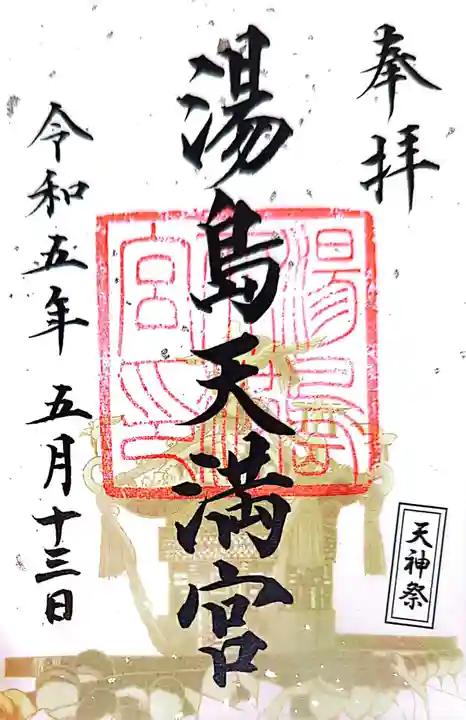 奉拝
湯島天満宮
令和五年 五月十三日
天神祭